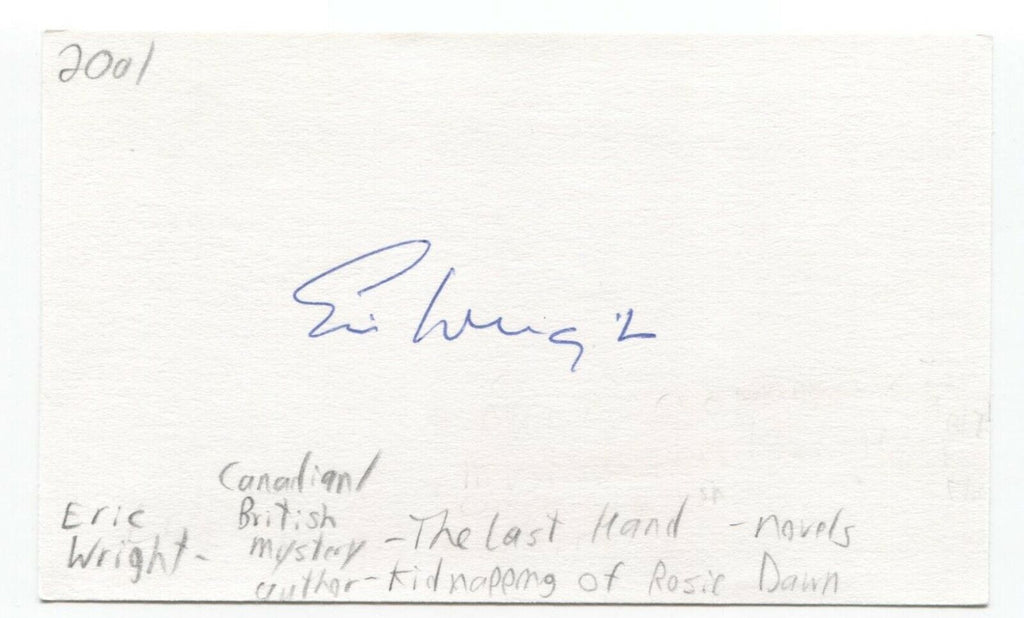 2001
Eric Wright
Canadian/
Eric British
Wright- mystery -The Last Hand" -novels
author-Kidnapping of Rosie Dawn